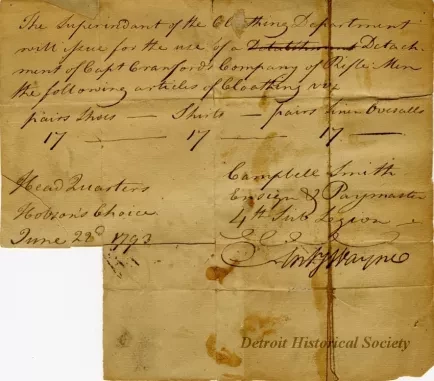 The Superindant of the Cloathing Department
will issue for the use of a Detachment Detach-
ment of Capt Cranford's Company of Rifle Men
the following articles of Cloathing viz
pairs Shoes — Shirts — pairs Linen Overalls
17 — 17 — 17 —
Head Quarters
Hobson's Choice
June 28th 1793
Campbell Smith
Ensign & Paymaster
4th Sub Legion
Anty Wayne
Detroit Historical Society